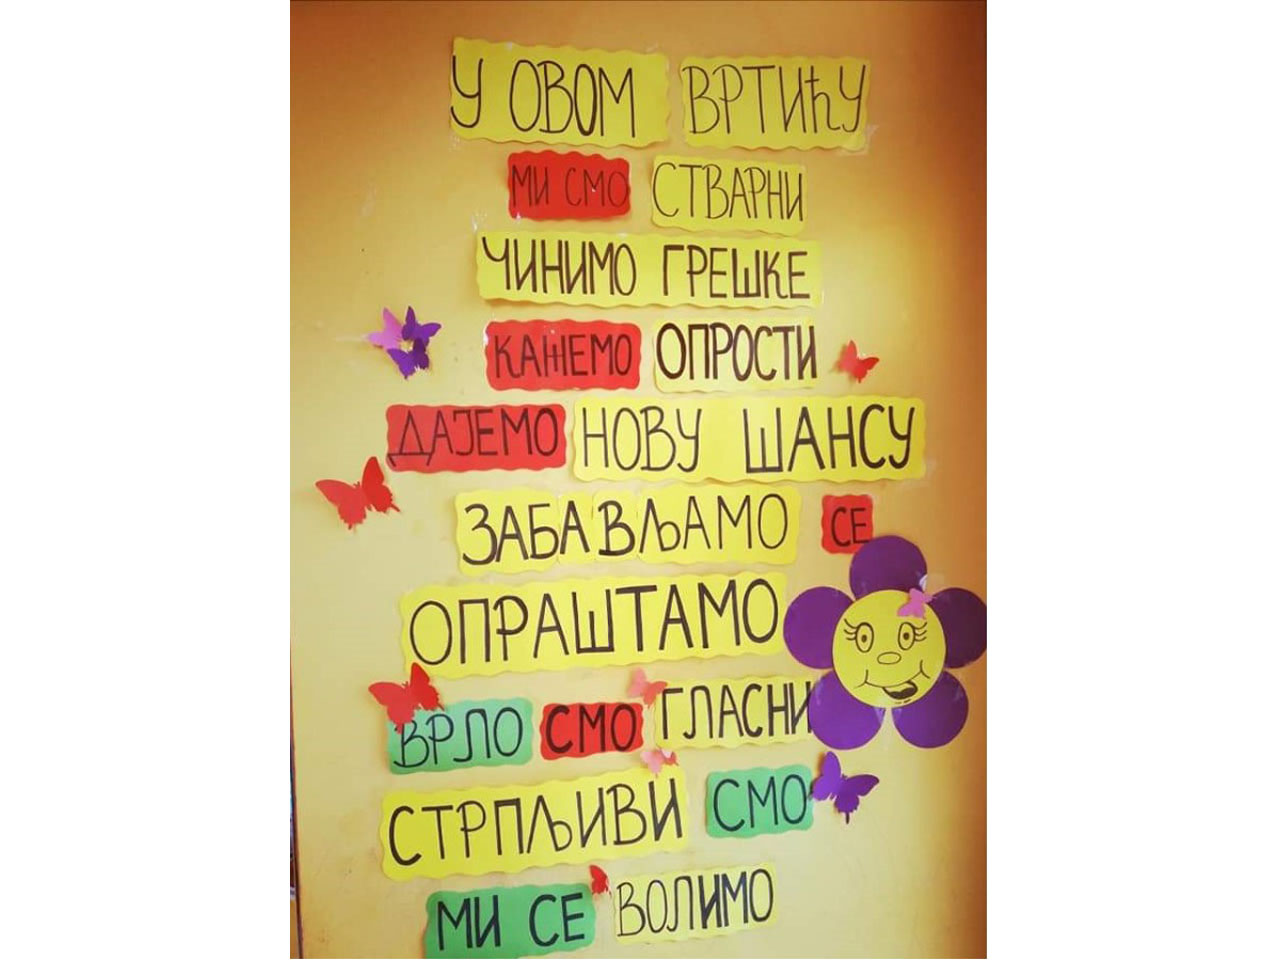 У ОВОМ ВРТИЋУ
МИ СМО СТВАРНИ
ЧИНИМО ГРЕШКЕ
КАЖЕМО ОПРОСТИ
ДАЈЕМО НОВУ ШАНСУ
ЗАБАВЉАМО СЕ
ОПРАШТАМО
ВРЛО СМО ГЛАСНИ
СТРПЉИВИ СМО
МИ СЕ ВОЛИМО